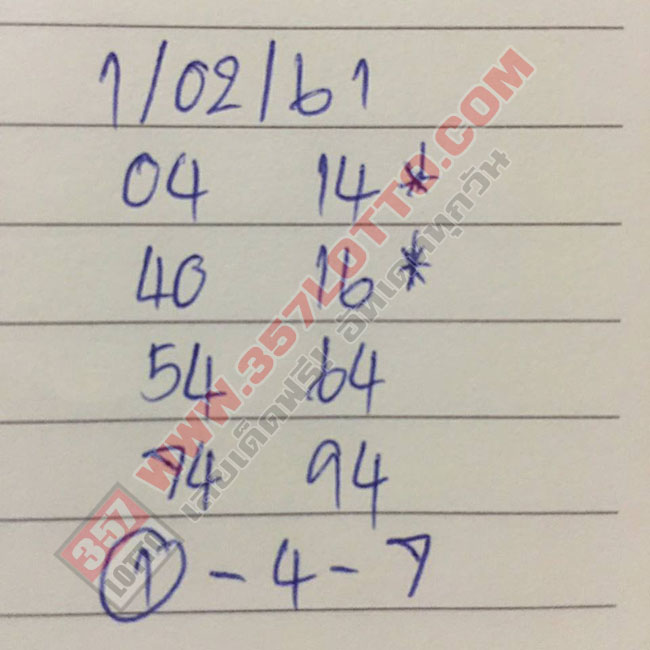 1/02/61
04 14*
40 16*
54 64
74 94
1 - 4 - 7
WWW.357LOTTO.COM
เลขเด็ดฟรี! อัพเดททุกวัน
357
LOTTO